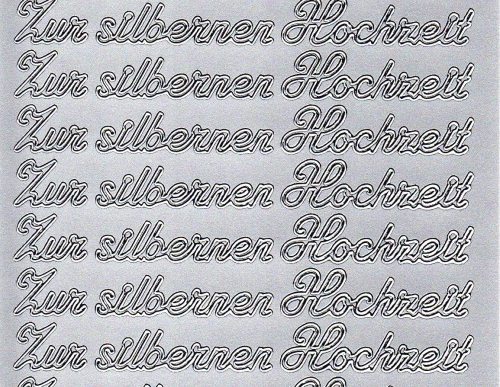 Zur silbernen Hochzeit
Zur silbernen Hochzeit
Zur silbernen Hochzeit
Zur silbernen Hochzeit
Zur silbernen Hochzeit
Zur silbernen Hochzeit
Zur silbernen Hochzeit